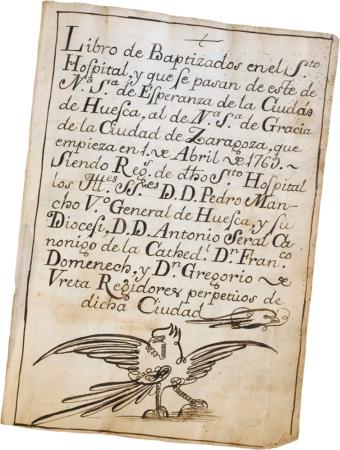 Libro de Baptizados en el Sto
Hospital, y que se pasan de este de
Na. Sa. de Esperanza de la Ciudad
de Huesca, al de Na. Sa. de Gracia
de la Ciudad de Zaragoza, que
empieza en 1. de Abril de 1769.
Siendo Regs. de dho Sto Hospital
los Illes. SS.res D. D. Pedro Man-
cho Vo. General de Huesca, y su
Diocesi, D. D. Antonio Seral Ca-
nonigo de la Cathedl. Dn. Franco
Domenech, y Dn. Gregorio de
Vreta Regidores perpetuos de
dicha Ciudad